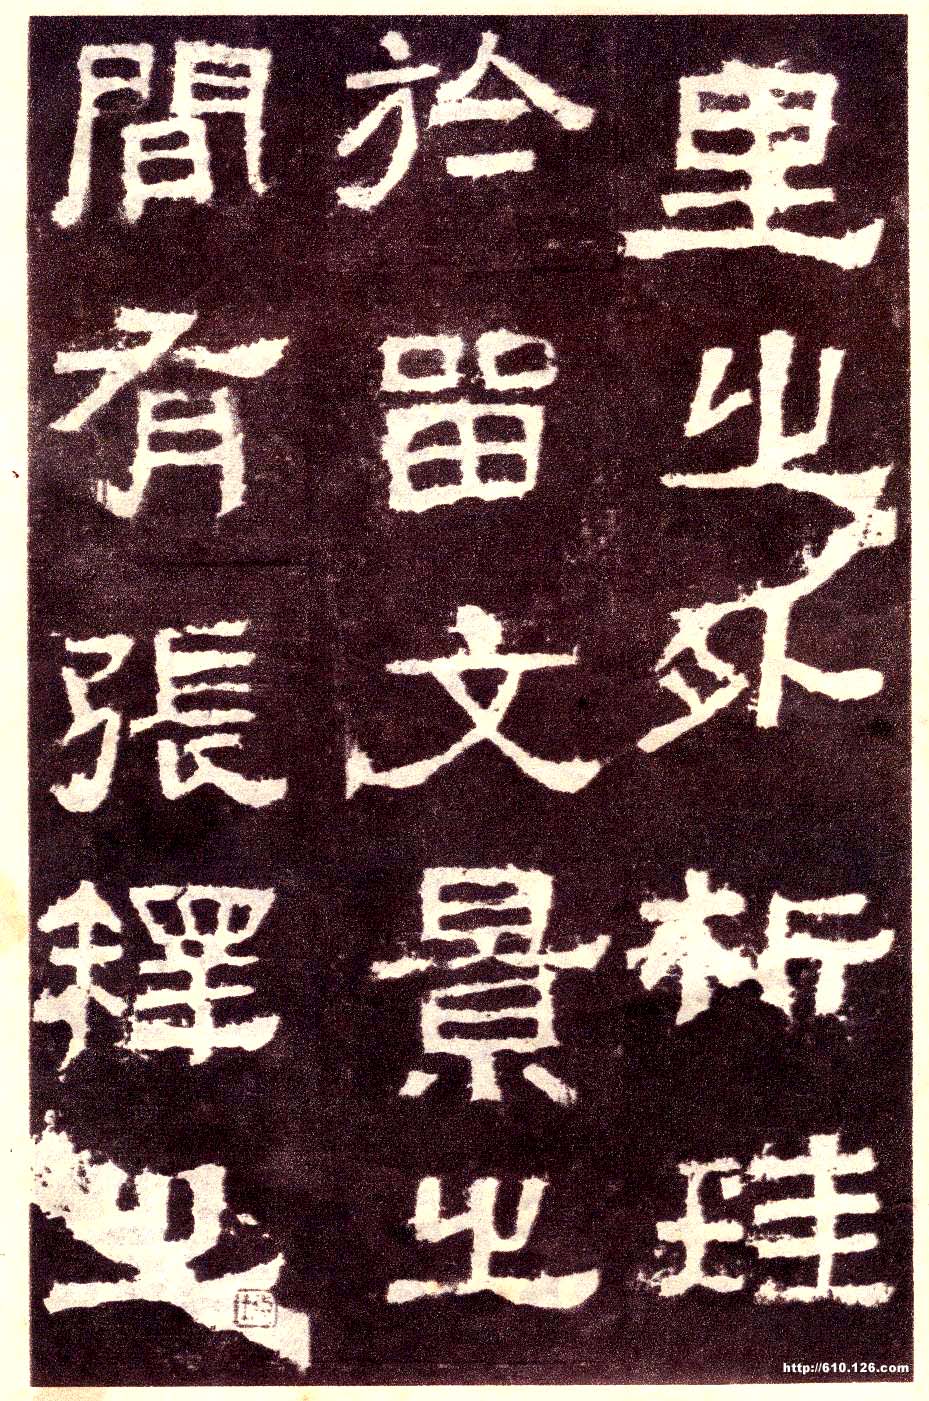 里之外析珪
於留文景之
間有張釋之
http://610.126.com